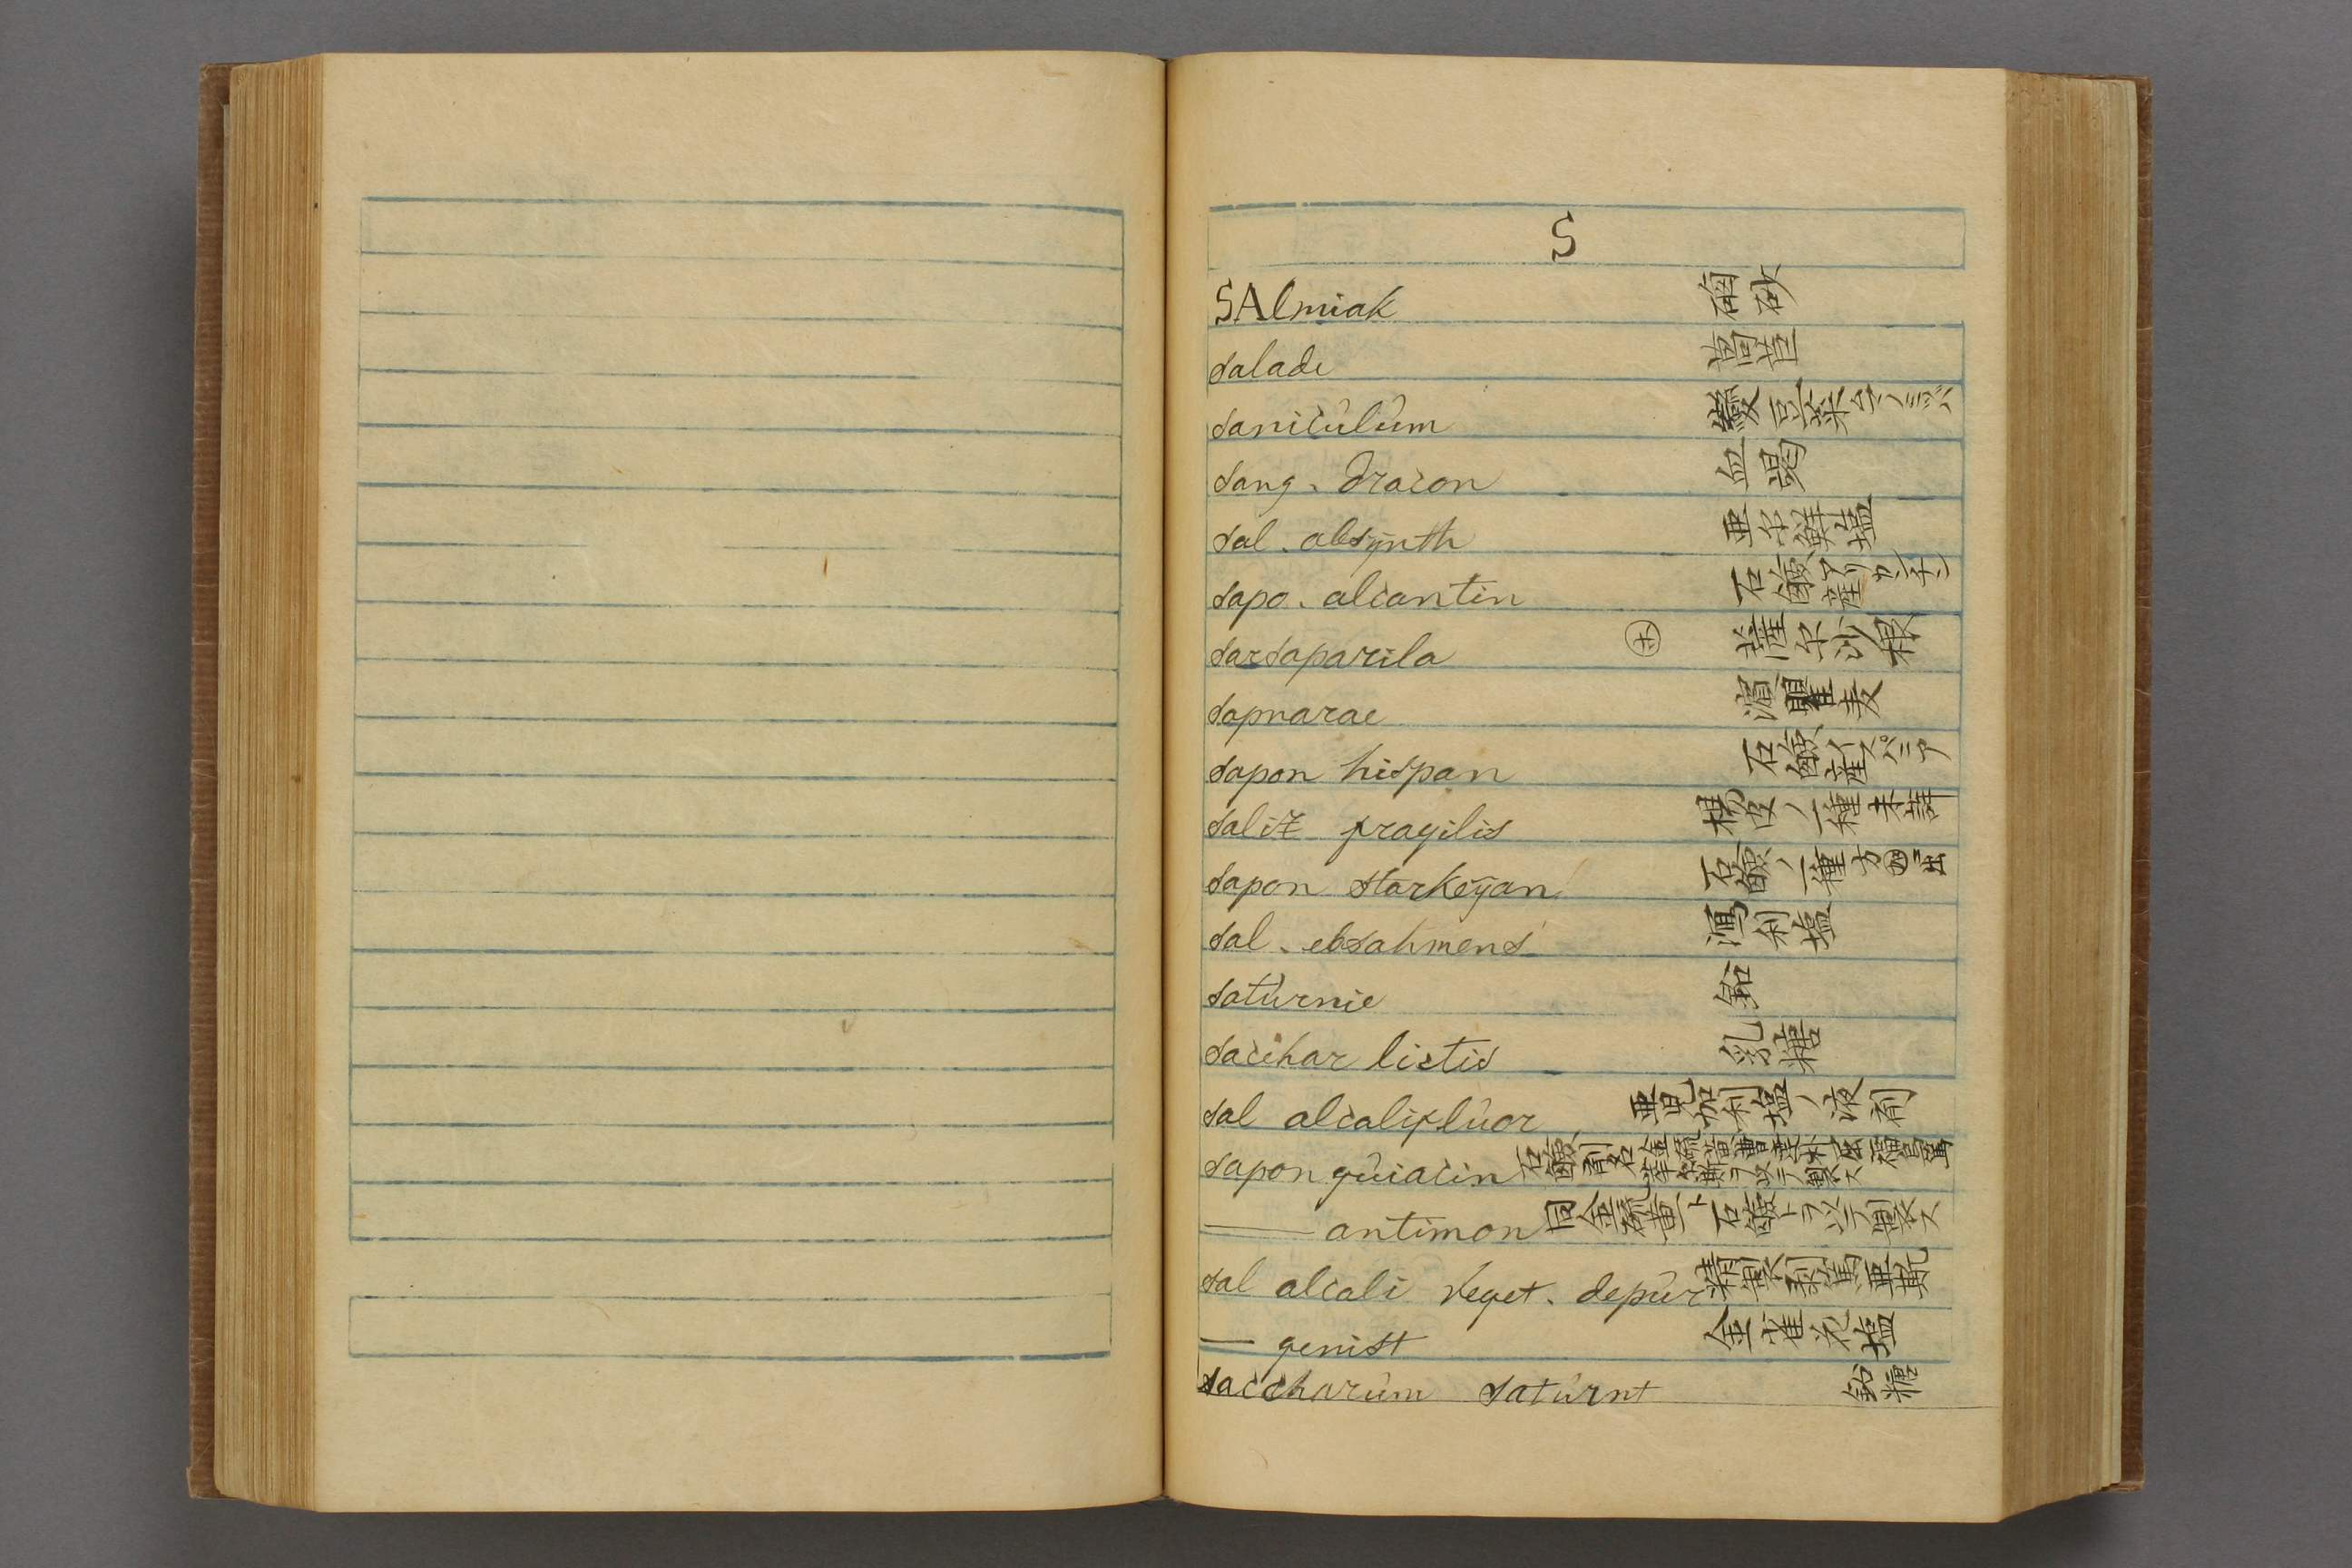 S
SAlmiak 硇砂
salade 萵苣
saniculum 豆菜 ウマノミツバ
sang. dracon 血竭
sal. absynth 亜尓鮮塩
sapo. alcantin 石鹸 アリカンチン 産
sarsaparila 薩尓沙根
sapnarae 瞿麦
sapon hispan 石鹸 イスパニア 産
salix fragilis 楊皮ノ一種未詳
sapon starkeyan 石鹸ノ一種方 ニ出
sal. ebsahmens 利塩
saturnie 鉛
sacchar lictis 乳糖
sal alcalifluor, 亜児加利塩ノ液剤
sapon guiacin 石鹸剤名
—— antimon 同金硫黄ト石鹸トヲ以テ製ス
sal alcali veget. depur 精製剥篤亜斯
— genist 金雀花塩
saccharum saturnt 鉛糖